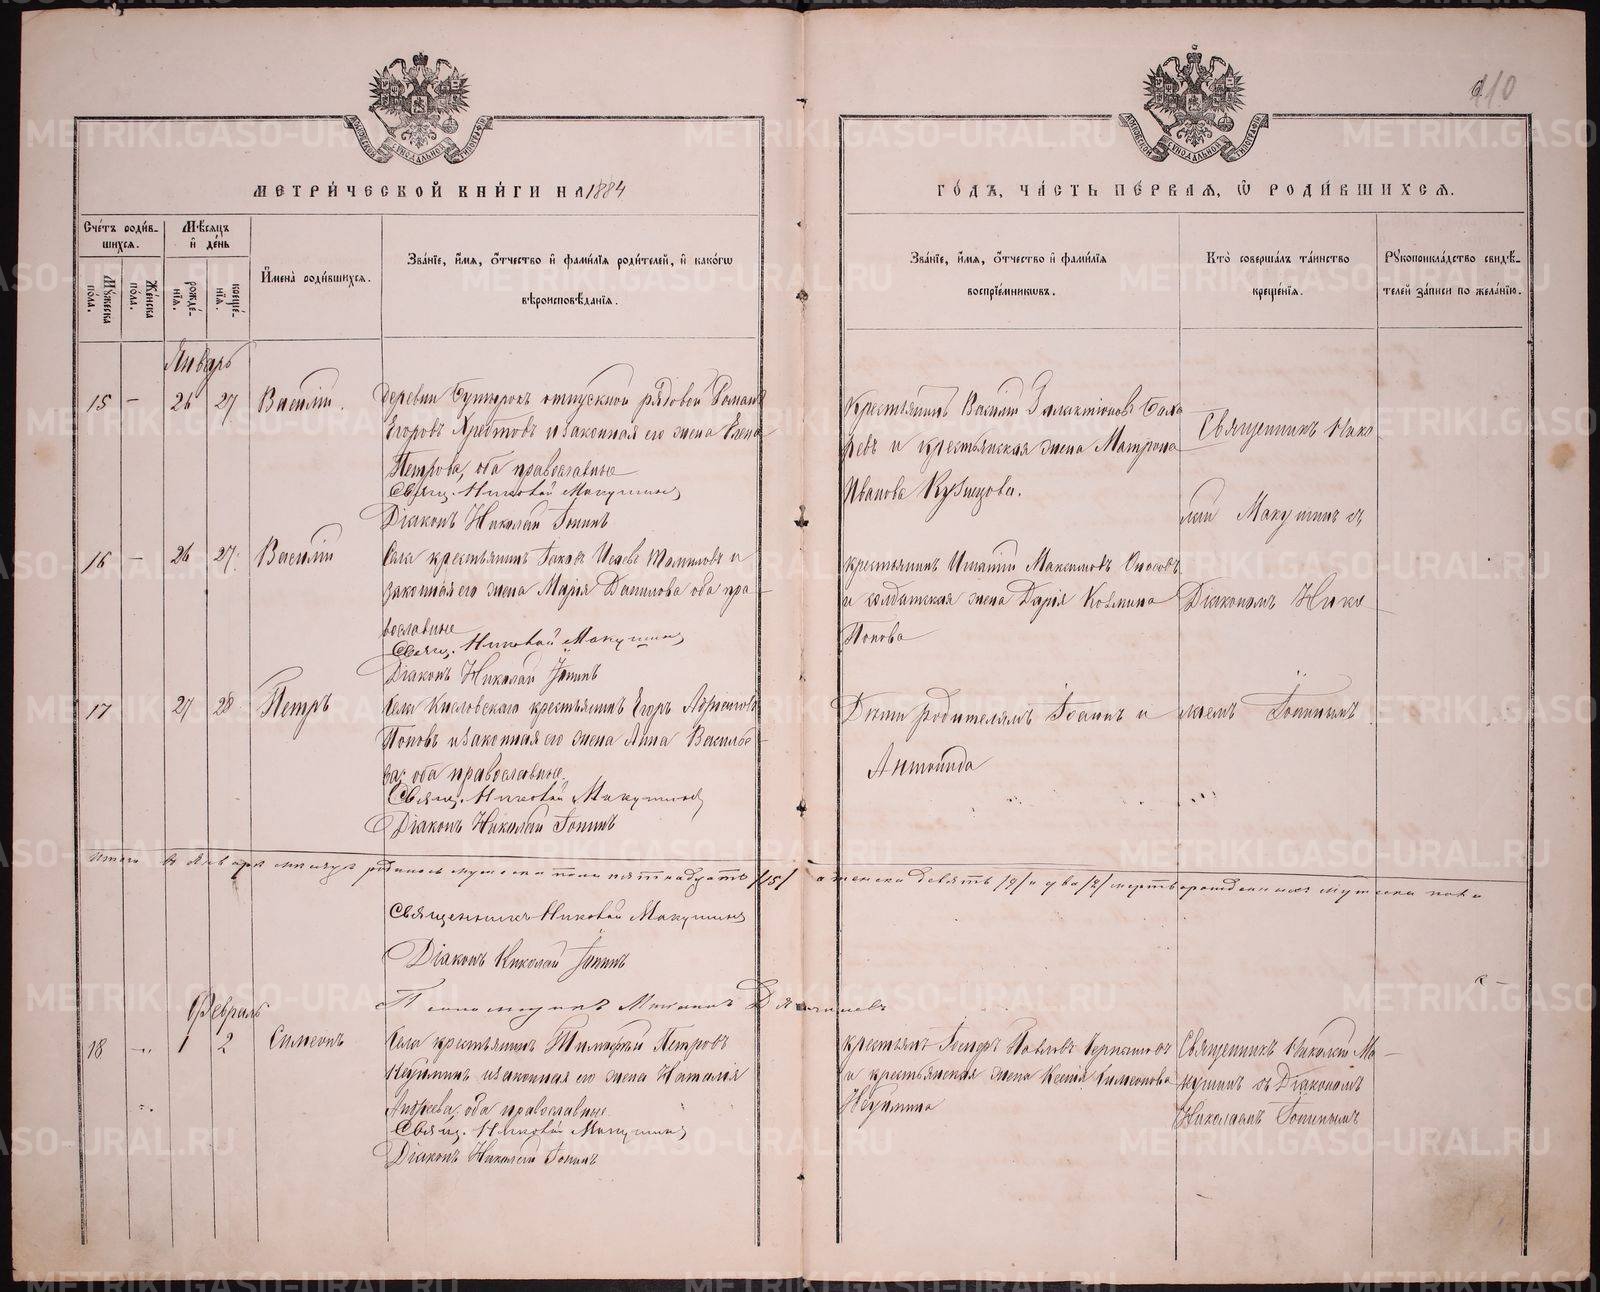 110
МОСКОВСКОЙ СѴНОДАЛЬНОЙ ТИПОГРАФІИ
МОСКОВСКОЙ СѴНОДАЛЬНОЙ ТИПОГРАФІИ
МЕТРИ́ЧЕСКОЙ КНИ́ГИ НА 1884
ГО́ДЪ, ЧА́СТЬ ПЕ́РВАЯ, Ѽ РОДИ́ВШИХСЯ.
Сче́тъ роди́в-
шихся.
Му́жеска
по́ла.
Же́нска
по́ла.
Мѣ́сяцъ
и҆ де́нь
рожде́-
нїя.
креще́-
нїя.
И҆мена̀ роди́вшихся.
Зва́нїе, и҆́мя, ѻ҆́тчество и҆ фами́лїя роди́телей, и҆ како́гѡ
вѣроисповѣ́данїя.
Зва́нїе, и҆́мя, ѻ҆́тчество и҆ фами́лїя
воспрїе́мникѡвъ.
Кто̀ соверша́лъ та́инство
креще́нїя.
Рꙋкоприкла́дство свидѣ́-
телей за́писи по жела́нїю.
Январь
15 — 26 27 Василій.
деревни отпускной рядовой Романъ
Егоровъ и законная его жена Елена
Петрова, оба православные
Свящ. Николай Макушинъ
Діаконъ Николай Іонинъ
Крестьянинъ Василій Галактіоновъ Баха
ревъ и крестьянская жена Матрона
Иванова Кузнецова.
Священникъ Нико
лай Макушинъ съ
16 — 26 27. Василій
Села крестьянинъ Іаковъ Исаевъ Томиловъ и
законная его жена Марія Данилова оба пра
вославные
Свящ. Николай Макушинъ
Діаконъ Николай Іонинъ
крестьянинъ Игнатій Максимовъ
и солдатская жена Дарія Козмина
Попова
Діакономъ Нико
17 27 28 Петръ
Села Кисловскаго крестьянинъ Егоръ
Поповъ и законная его жена Анна Василье
ва, оба православные.
Свящ. Николай Макушинъ
Діаконъ Николай Іонинъ
Дѣти родителямъ Іоаннъ и
Антонида
лаемъ Іонинымъ
Итого въ Январѣ мѣсяцѣ родилось мужеска пола пятнадцать /15/ а женска девять /9/ и два /2/ мертворожденныхъ мужеска пола
Священникъ Николай Макушинъ
Діаконъ Николай Іонинъ
Псаломщикъ
Февраль
18 — 1 2 Симеонъ
Села крестьянинъ Тимофей Петровъ
Неуйминъ и законная его жена Наталія
Андреева, оба православные.
Свящ. Николай Макушинъ
Діаконъ Николай Іонинъ
крестьян. Павловъ
и крестьянская жена Ксенія Симеонова
Неуймина
Священникъ Николай Ма
кушинъ съ Діакономъ
Николаемъ Іонинымъ
METRIKI.GASO-URAL.RU